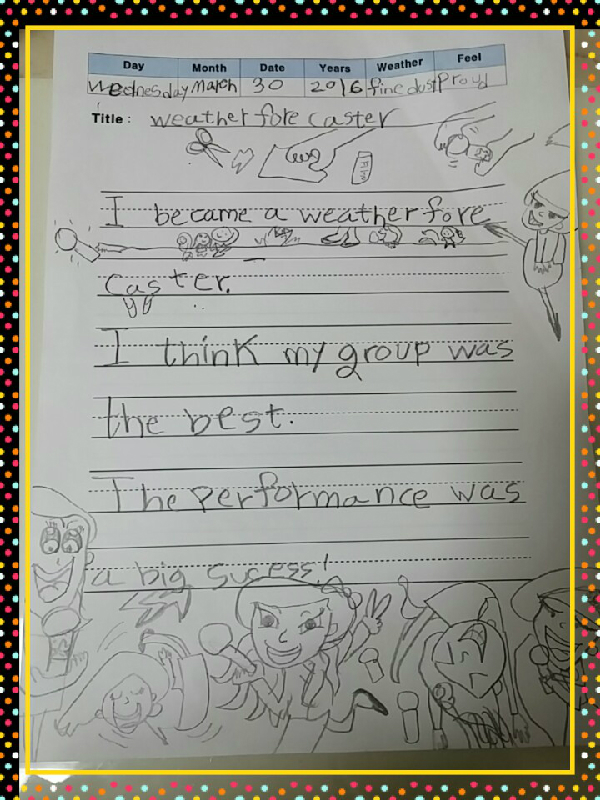 Day Month Date Years Weather Feel
Wednesday March 30 2016 fine dust Proud
Title : weather fore caster
I became a weather fore
caster.
I think my group was
the best.
The performance was
a big sucess!